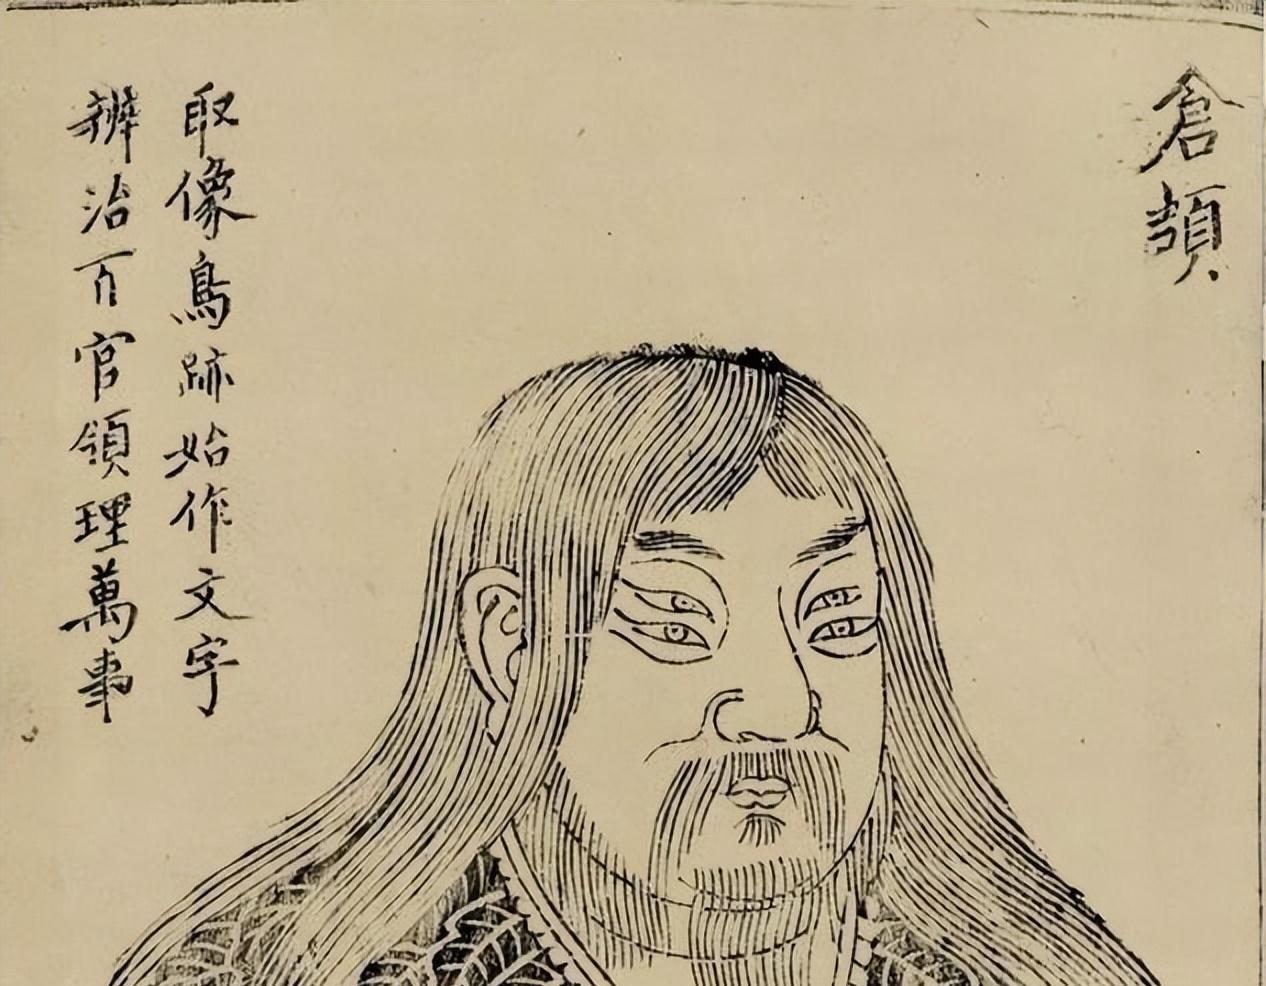 倉頡
取像鳥跡始作文字
辨治百官領理萬事